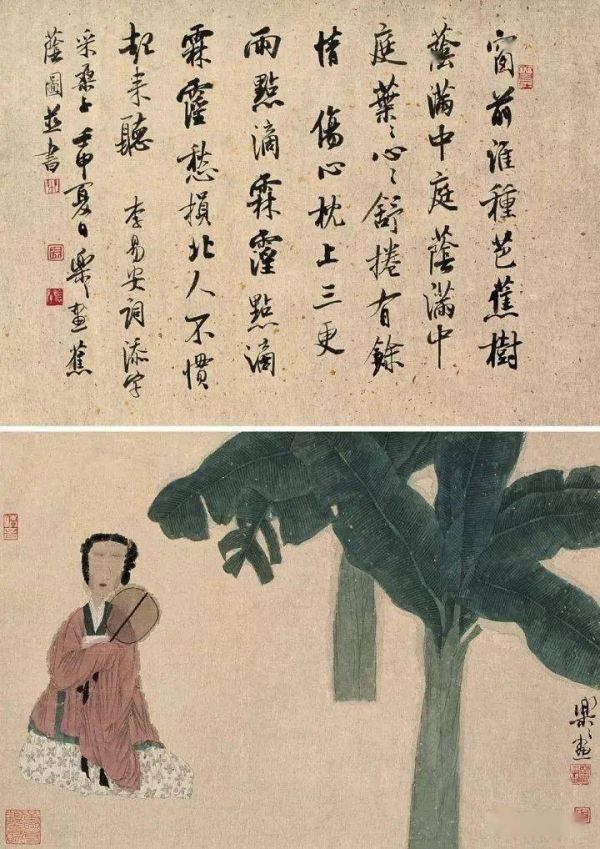 窗前誰種芭蕉樹
蔭滿中庭蔭滿中
庭葉〻心〻舒捲有餘
情 傷心枕上三更
雨點滴霖霪點滴
霖霪愁損北人不慣
起来聽 李易安詞添字
采桑子 壬申夏日樂〻畫蕉
蔭圖並書
樂〻畫